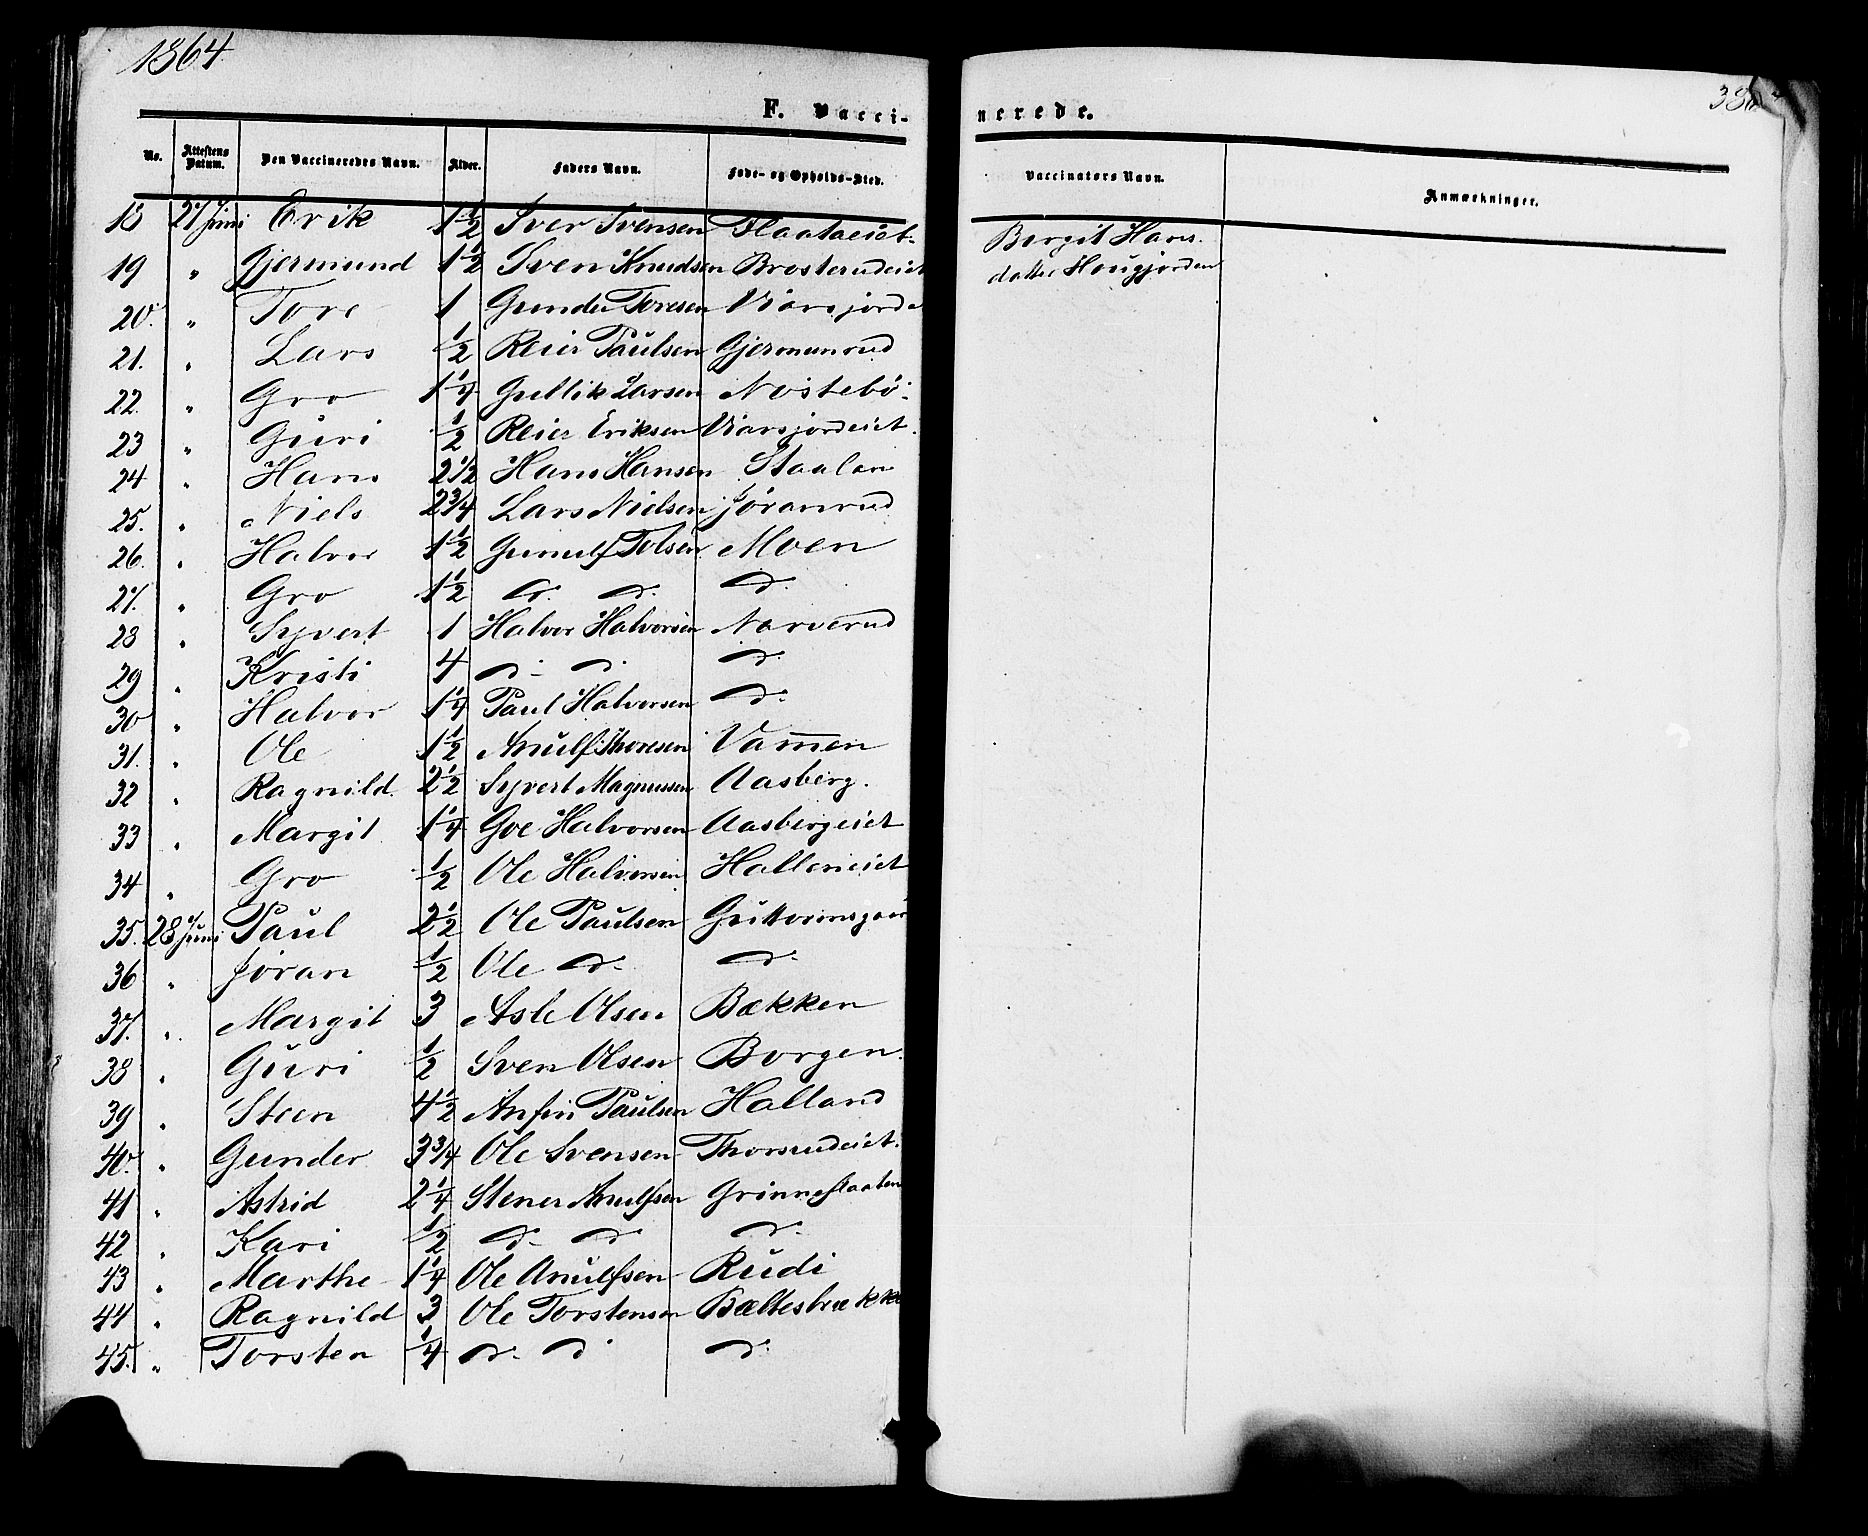 1864
F. Vaccinerede.
No. Attestens Datum. Den Vaccineredes Navn. Alder. Faders Navn. Føde- og Opholds-Sted. Vaccinators Navn. Anmærkninger.
18 27 Juni Erik 1 1/2 Iver Svensen Flaataeiet Birgit Hans-
19 " Gjermund 1 1/2 Sven Knudsen Brosterudeiet datter Hougjorden
20. " Tore 1 Gunder Toresen Viersjorde
21. " Lars 1/2 Reier Paulsen Gjermunrud
22. " Gro 1 1/4 Gullik Larsen Nostebö
23 " Guri 1/2 Reier Eriksen Viersjordeiet.
24 " Hans 2 1/2 Hans Hansen Staalen
25. " Niels 2 3/4 Lars Nielsen Jöranrud
26. " Halvor 1 1/2 Gunulf Tolsen Moen
27. " Gro 1 1/2 d. d. d.
28 " Syvert 1 Halvor Halvorsen Narverud
29 " Kristi 4 d. d. d.
30 " Halvor 1 1/4 Paul Halvorsen d.
31. " Ole 1 1/2 Anulf Thoresen Vammen
32 " Ragnild 2 1/2 Syvert Magnussen Aasberg.
33 " Margit 1 1/4 Goe Halvorsen Aasbergeiet
34 " Gro 1/2 Ole Halvorsen Halleneiet
35. 28 Juni Paul 2 1/2 Ole Paulsen Guttormsgaar
36 " Jöran 1/2 Ole d. d.
37. " Margit 3 Asle Olsen Bækken
38 " Guri 1/2 Sven Olsen Borgen.
39 " Steen 4 1/2 Anfin Paulsen Halland
40. " Gunder 3 3/4 Ole Svensen Thorsrudeiet.
41 " Astrid 2 1/4 Stener Anulfsen Grinneflaaten
42 " Kari 1/2 d. d. d.
43 " Marthe 1 1/4 Ole Anulfsen Rudi
44 " Ragnild 3 Ole Torstensen Bæltesbrække
45. " Torsten 1/4 d. d d.